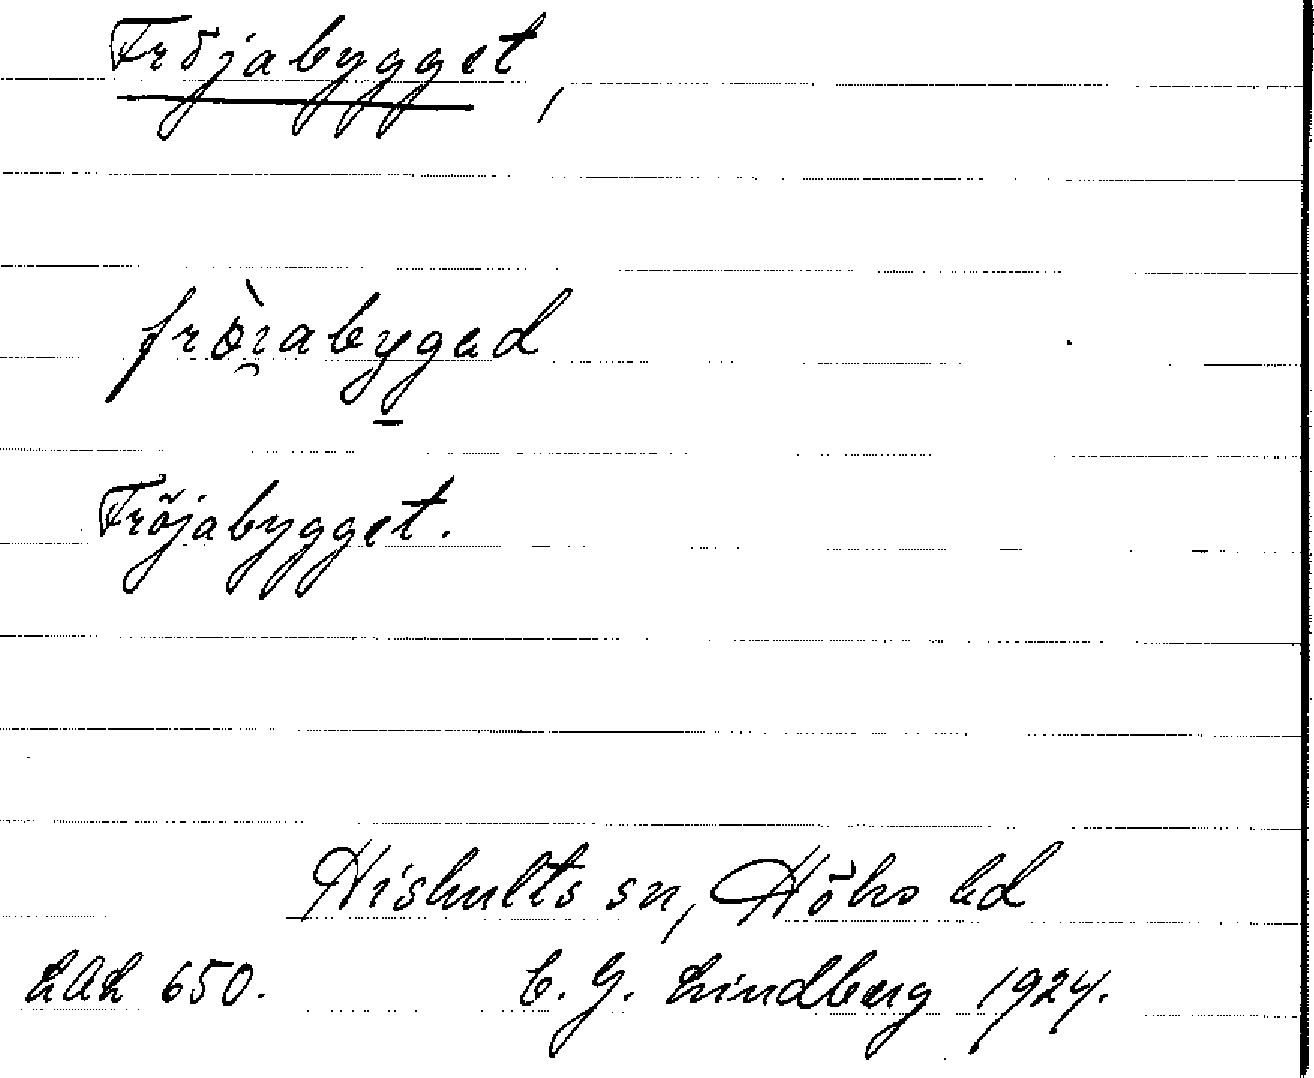 Fröjabygget,
frö̀i̯abygad
Fröjabygget.
Hishults sn, Höks hd
LAL 650. C. G. Lindberg 1924.